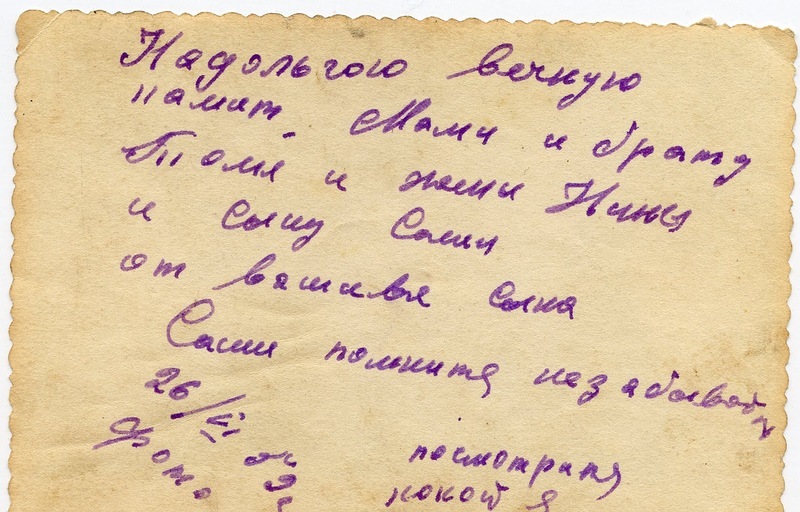 Надольгою вечную
памит. Мами и брату
Толи и жени Нини
и сыну Саши
от вашивя сына
Саши помнитя незабывай
26/VI
Фото посмотритя
кокой я